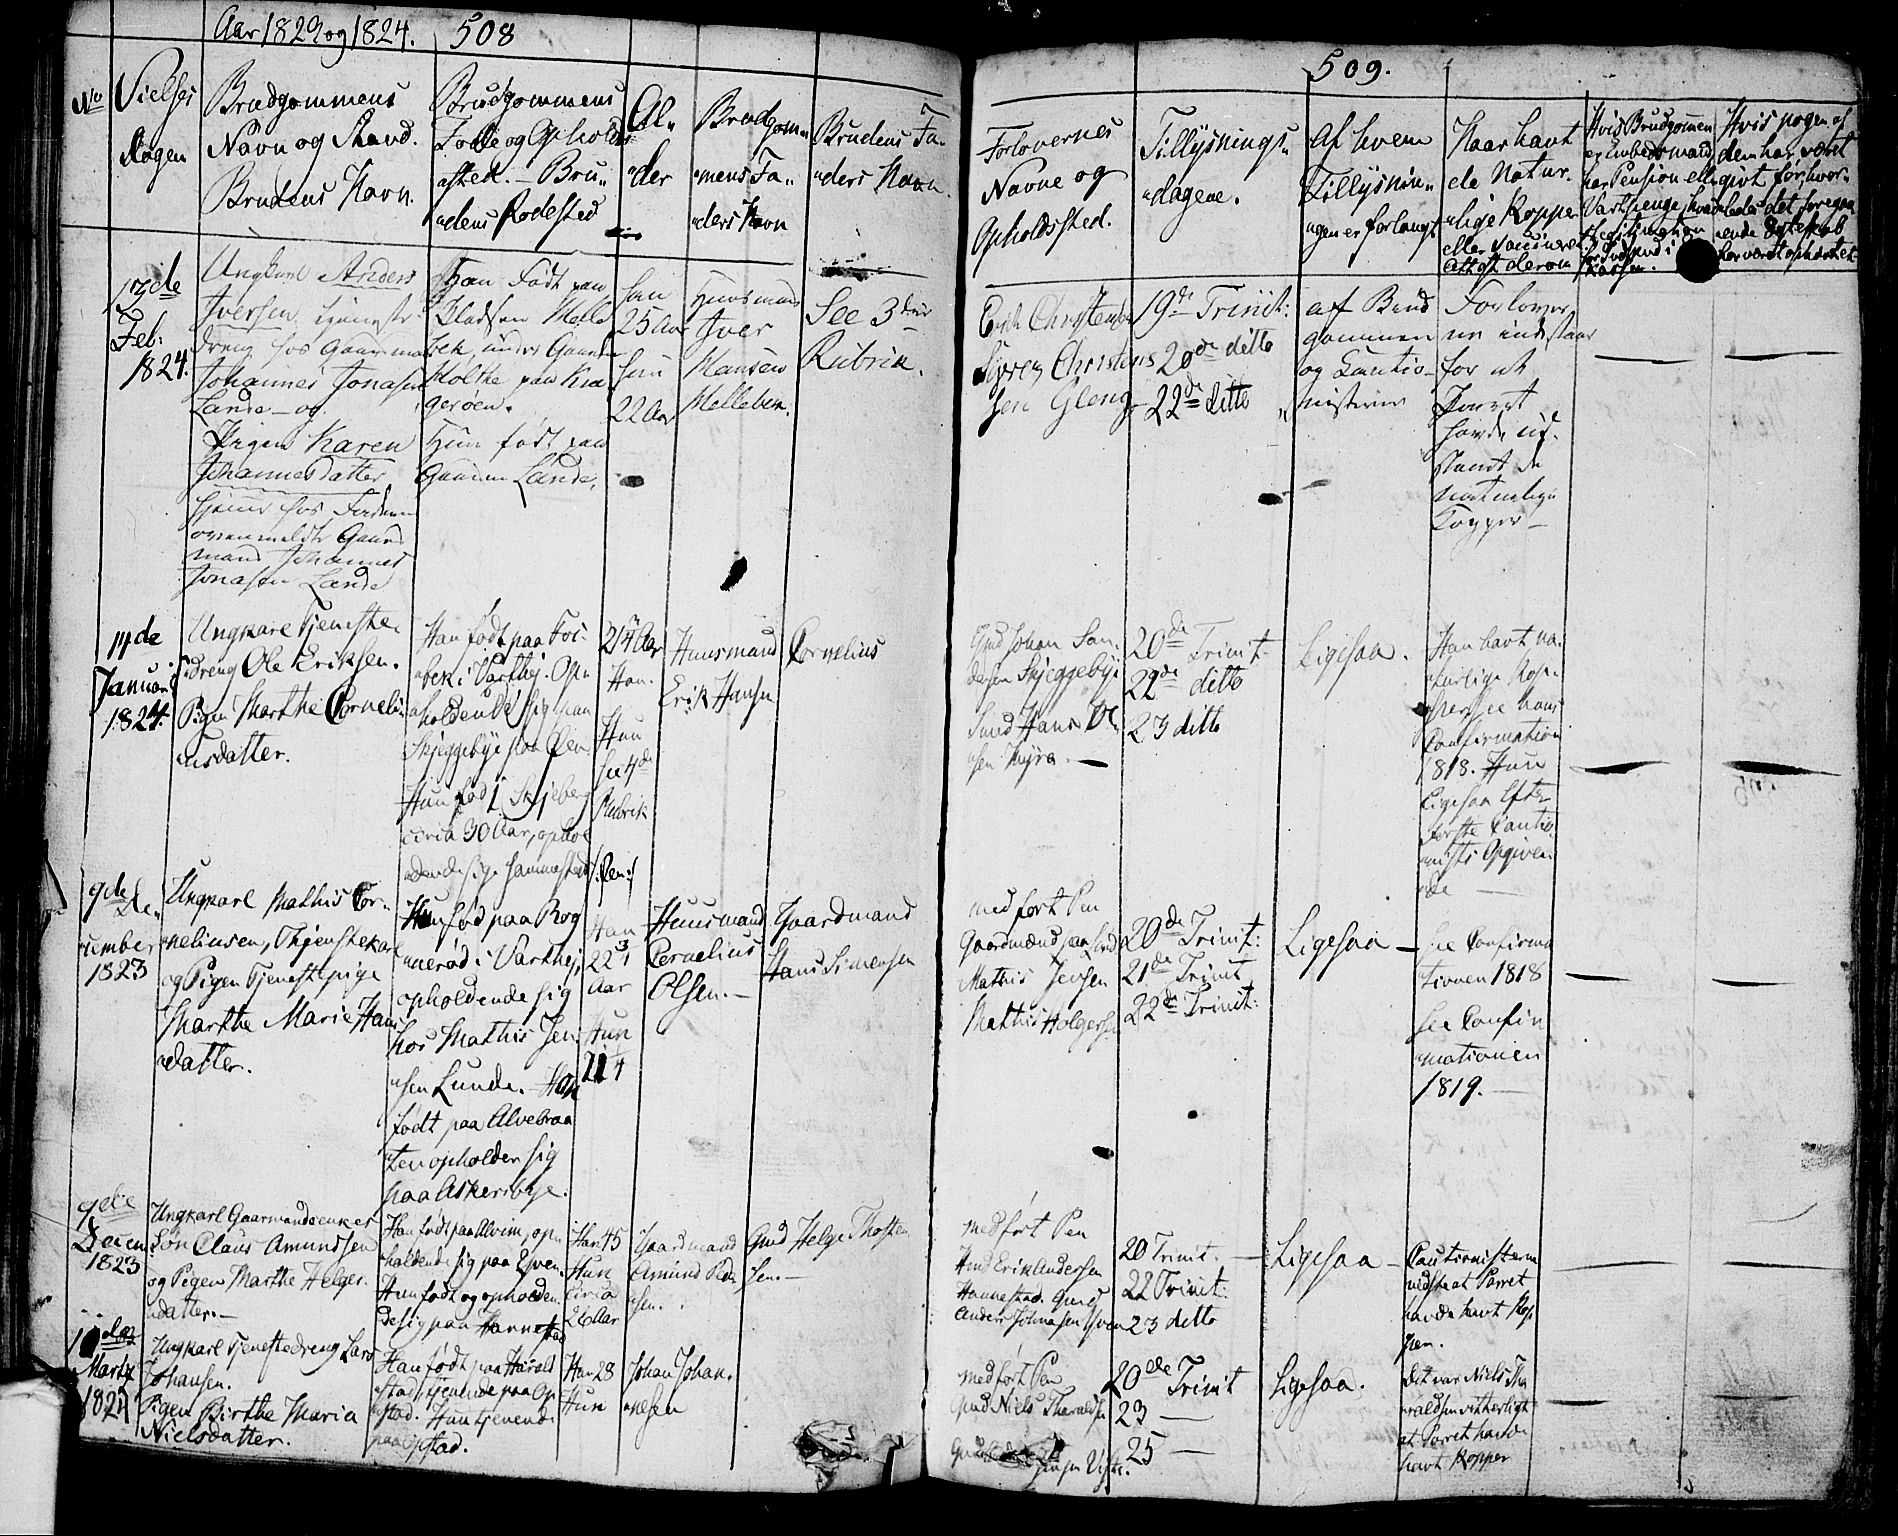 Aar 1823 og 1824. 508
No
Vielses
dagen
Brudgommens
Navn og Stand.
Brudens Navn.
Brudgommens
Føde og Opholds
sted. – Bru„
„dens Fødested
Al„
„der
Brudgom„
„mens Fa„
„ders Navn
Brudens Fa„
„ders Navn
13de
Feb:
1824.
Ungkarl Anders
Iversen tjeneste
dreng hos Gaardmand
Johannes Jonasen
Lande – og
Pigen Karen
Johannesdatter
hjemme hos Faderen
ovenmeldte Gaard
mand Johannes
Jonasen Lande
Han født paa
Pladsen Melle
bek under Gaarden
Holthe paa Kra
gerøen.
Hun født paa
Gaarden Lande.
han
25 Aar
hun
22 Aar
Huusmand
Iver
Hansen
Mellebek.
See 3die
Rubrik.
14de
Januari
1824.
Ungkarl Tjeneste„
„dreng Ole Eriksen.
Pigen Marthe Corneli„
„usdatter.
Han født paa Fos„
„bek i Varthej. Op„
holdende sig paa
Skjeggebye paa Øen
Hun fød i Skjeberg
circa 30 Aar, ophol
dende sig sammesteds
Aar
Han.
Hun
see 4de
Rubrik
Huusmand
Erik Hansen
Cornelius
9de De„
„cember
1823
Ungkarl Mathis Cor„
„neliusen, Thjenstekarl
og Pigen Tjenestepige
Marthe Marie Hans
„datter.
Han fød paa Rog
„nerød i Varthej,
opholdende sig
hos Mathis Jen„
„sen Lunde. – Hun
født paa Alvebraa
ten opholder sig
paa Askersbye.
Han
22
Aar
Hun
Huusmand
Cornelius
Olsen. –
Gaardmand
Hans Simensen
9de
Decem
1823
Ungkarl Gaarmandsenkes
Søn Claus Amundsen
og Pigen Marthe Helges
„datter. –
Han født paa Alvim, op„
holdende sig paa Even.
Hun født og ophol­den
de sig paa Hannestad
Han 45
Hun
circa
26 Aar
Gaardmand
Amund Peder
„sen.
Gmd Helge Thosten
sen. –
Martz
1824
Ungkarl Tjenestedreng Lars
Johansen.
Pigen Birthe Maria
Nielsdatter.
Han født paa Harald
stad tjenende paa Op
„stad. Hun tjenende
paa Opstad.
Han 28
Hun
Johan Johan„
„nesen
509.
Forlovernes
Navne og
Opholdssted.
Tillysnings„
„dagene.
Af hvem
Tillysnin„
„gen er forlangt
Naar havt
de Natur„
„lige Kopper
eller Vaccineret
Attest derom
Hvis Brudgommen
er Embedsmand
har Pension eller
Vartpenge, hvad
Legitimation
for Indskud i
Kassen.
Hvis nogen af
dem har været
givt før, hvor„
„ledes det foregaa
„ende Ægteskab
har været ophævet
Erik Christensen
Syren Christens
sen Gleng
19de Trinit:
20de ditto
22de ditto
af Brud
gommen
og Cautio„
„nisterne
Forlover
ne indestaar
for at
Parret
havde ud„
staaet de
naturlige
Kopper –
Gmd Johan San„
dersen Skjeggebye
Smd Hans Ol„
„sen Kyra. –
20de Trinit.
22de ditto
23 ditto
Ligesaa.
Han havt na„
turlige Kop„
per see hans
Confirmation
1818. Hun
Ligesaa Efter
første Cautio
„nists Opgiven
„de –
med ført Pen
Gaardmænd paa Lunde
Mathis Jensen
Mathis Holgersen
20de Trinit:
21de Trinit
22de Trinit:
Ligesaa –
see Confirma
tionen 1818
see Confir
mationen
1819. –
med ført Pen
Gmd Erik Andersen
Hannestad. Gmd
Anders Johnasen Even
20 Trinit. –
22 Trinit:
23 ditto
Ligesaa –
Cautionisterne
vidste at Parret
havde havt Kop
per.
med ført Pen
Gmd Niels Tharaldsen
20de Trinit
23 –
25 –
Ligesaa.
Det var Niels Tha
raldsen vitterligt
at Parret havde
havt Kopper